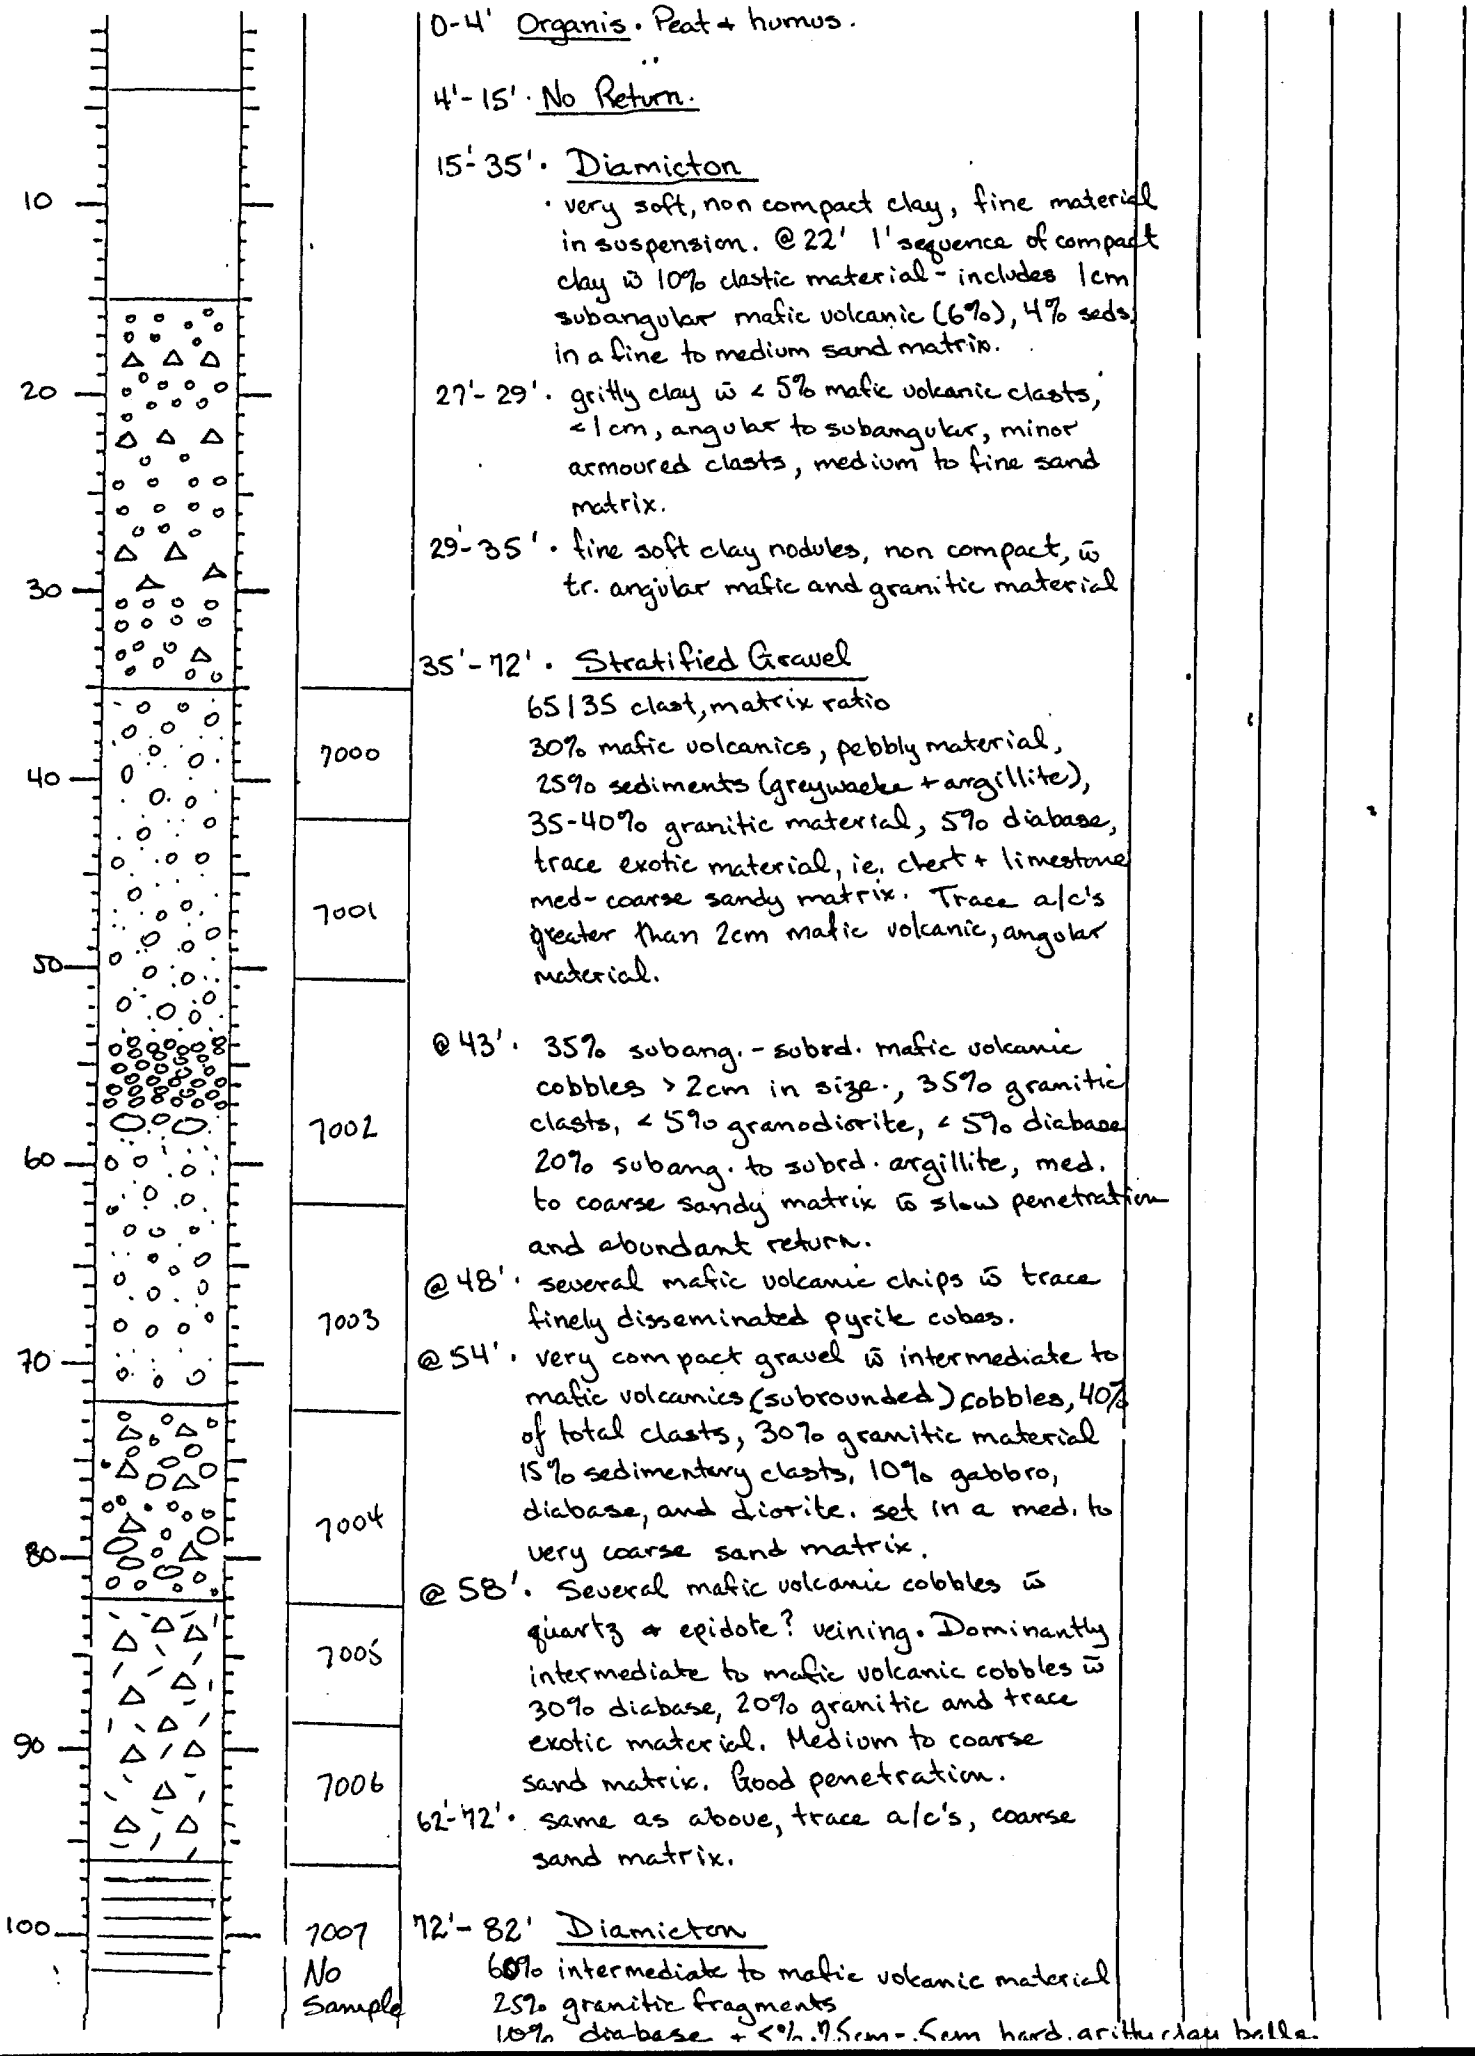 0-4' Organis. Peat + humus.
4'-15'. No Return.
15'-35'. Diamicton
10
· very soft, non compact clay, fine material
in suspension. @ 22' 1' sequence of compact
clay w̄ 10% clastic material - includes 1cm
subangular mafic volcanic (6%), 4% seds,
in a fine to medium sand matrix.
20
27'-29'. gritty clay w̄ < 5% mafic volcanic clasts,
<1cm, angular to subangular, minor
armoured clasts, medium to fine sand
matrix.
29'-35'. fine soft clay nodules, non compact, w̄
30
tr. angular mafic and granitic material
35'-72'. Stratified Gravel
65/35 clast, matrix ratio
7000
30% mafic volcanics, pebbly material,
40
25% sediments (greywacke + argillite),
35-40% granitic material, 5% diabase,
trace exotic material, ie. chert + limestone
7001
med-coarse sandy matrix. Trace a/c's
greater than 2cm mafic volcanic, angular
50
material.
@ 43'. 35% subang. - subrd. mafic volcanic
cobbles > 2cm in size., 35% granitic
7002
clasts, < 5% granodiorite, < 5% diabase
60
20% subang. to subrd. argillite, med.
to coarse sandy matrix w̄ slow penetration
and abundant return.
@ 48'. several mafic volcanic chips w̄ trace
7003
finely disseminated pyrite cubes.
70
@ 54'. very compact gravel w̄ intermediate to
mafic volcanics (subrounded) cobbles, 40%
of total clasts, 30% granitic material
15% sedimentary clasts, 10% gabbro,
7004
diabase, and diorite. set in a med. to
80
very coarse sand matrix.
@ 58'. Several mafic volcanic cobbles w̄
quartz + epidote? veining. Dominantly
7005
intermediate to mafic volcanic cobbles w̄
30% diabase, 20% granitic and trace
90
exotic material. Medium to coarse
7006
sand matrix. Good penetration.
62'-72'. same as above, trace a/c's, coarse
sand matrix.
100
7007
No
Sample
72'-82' Diamicton
60% intermediate to mafic volcanic material
25% granitic fragments
10% diabase + hard gritty clay balls.